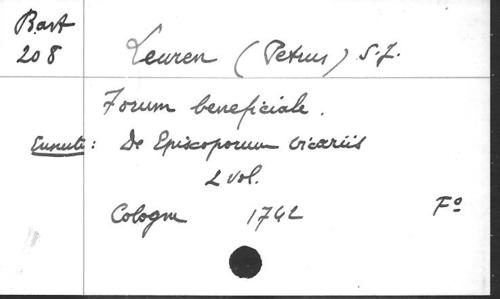 Bast
208
Leuren (Petrus) S.J.
Forum beneficiale.
De Episcoporum vicariis
2 vol.
Cologne 1742 Fo